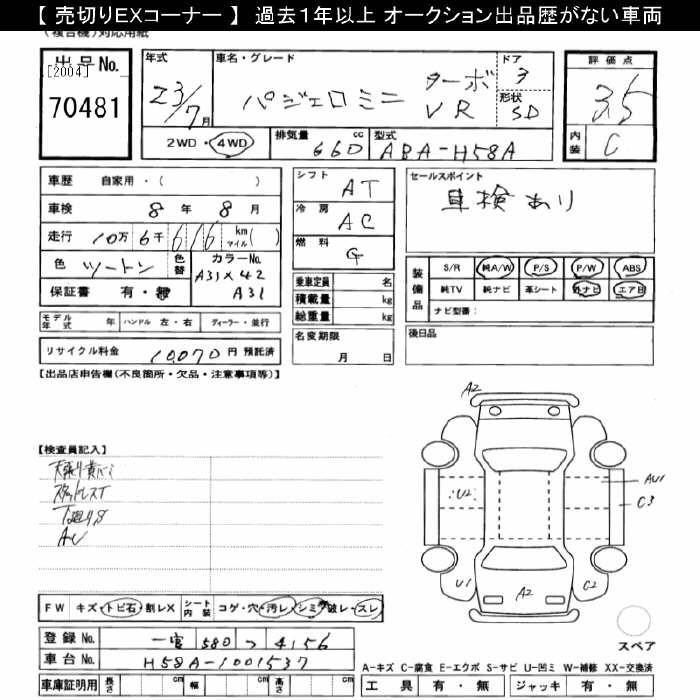 【 売切りEXコーナー 】 過去1年以上 オークション出品歴がない車両
(複合機)対応用紙
出品No.
[2004]
70481
年式
23/7月
車名・グレード
パジェロミニ
ターボ
VR
ドア
3
形状
SD
2WD・4WD
排気量 660 cc
型式 ABA-H58A
評価点
3.5
内装 C
車歴 自家用・( )
車検 8年 8月
走行 10万 6千 616 km マイル( )
色 ツートン 色替
カラーNo. A31×42 A31
保証書 有・無
モデル年式 年 ハンドル 左・右 ディーラー・並行
リサイクル料金 10,070 円 預託済
シフト AT
冷房 AC
燃料 G
乗車定員 名
積載量 kg
総重量 kg
名変期限
月 日
セールスポイント
車検あり
装備品
S/R 純A/W P/S P/W ABS
純TV 純ナビ 革シート 社外ナビ エアB
ナビ型番:
後日品
【出品店申告欄(不良箇所・欠品・注意事項等)】
【検査員記入】
スタッドレスT
下廻りS
AW
A2
U2
AW1
C3
U1
A2
C2
スペア
FW キズ・トビ石・割レX シート内装 コゲ・穴・汚レ・シミ・破レ・スレ
登録No. 一宮 580 つ 4156
車台No. H58A-1001537
車庫証明用 長さ cm 幅 cm 高さ cm
A-キズ C-腐食 E-エクボ S-サビ U-凹ミ W-補修 XX-交換済
工具 有・無 ジャッキ 有・無